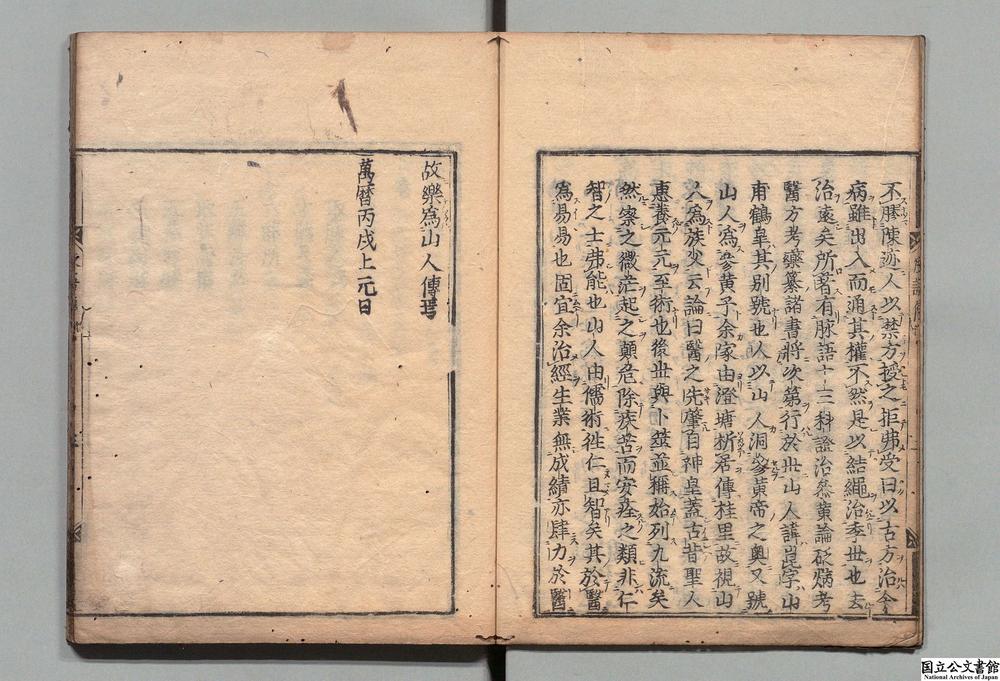 不勝陳迹人以禁方授之拒弗受曰以古方治今
病雖出入而通其權不然是以結繩治季世也去
治遠矣所著有脉語十三科證治參黃論砭焫考
醫方考藥纂諸書將次第行於世山人諱崑字山
甫鶴皐其別號也人以山人洞參黃帝之奧又號
山人為參黃子余家由澄塘析居傳桂里故視山
人為族父云論曰醫之先肇自神皇蓋古昔聖人
惠養元元至術也後世與卜筮並稱始列九流矣
然察之微茫起之顛危除疾苦而安痊之類非仁
智之士弗能也山人由儒術徃仁且智矣其於醫
為易易也固宜余治經生業無成績亦肆力於醫
故樂為山人傳
萬曆丙戌上元日
国立公文書館
National Archives of Japan